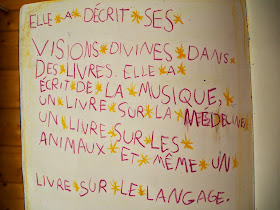 ELLE A DÉCRIT SES
VISIONS DIVINES DANS
DES LIVRES. ELLE A
ÉCRIT DE LA MUSIQUE,
UN LIVRE SUR LA MÉDECINE
UN LIVRE SUR LES
ANIMAUX ET MÊME UN
LIVRE SUR LE LANGAGE.